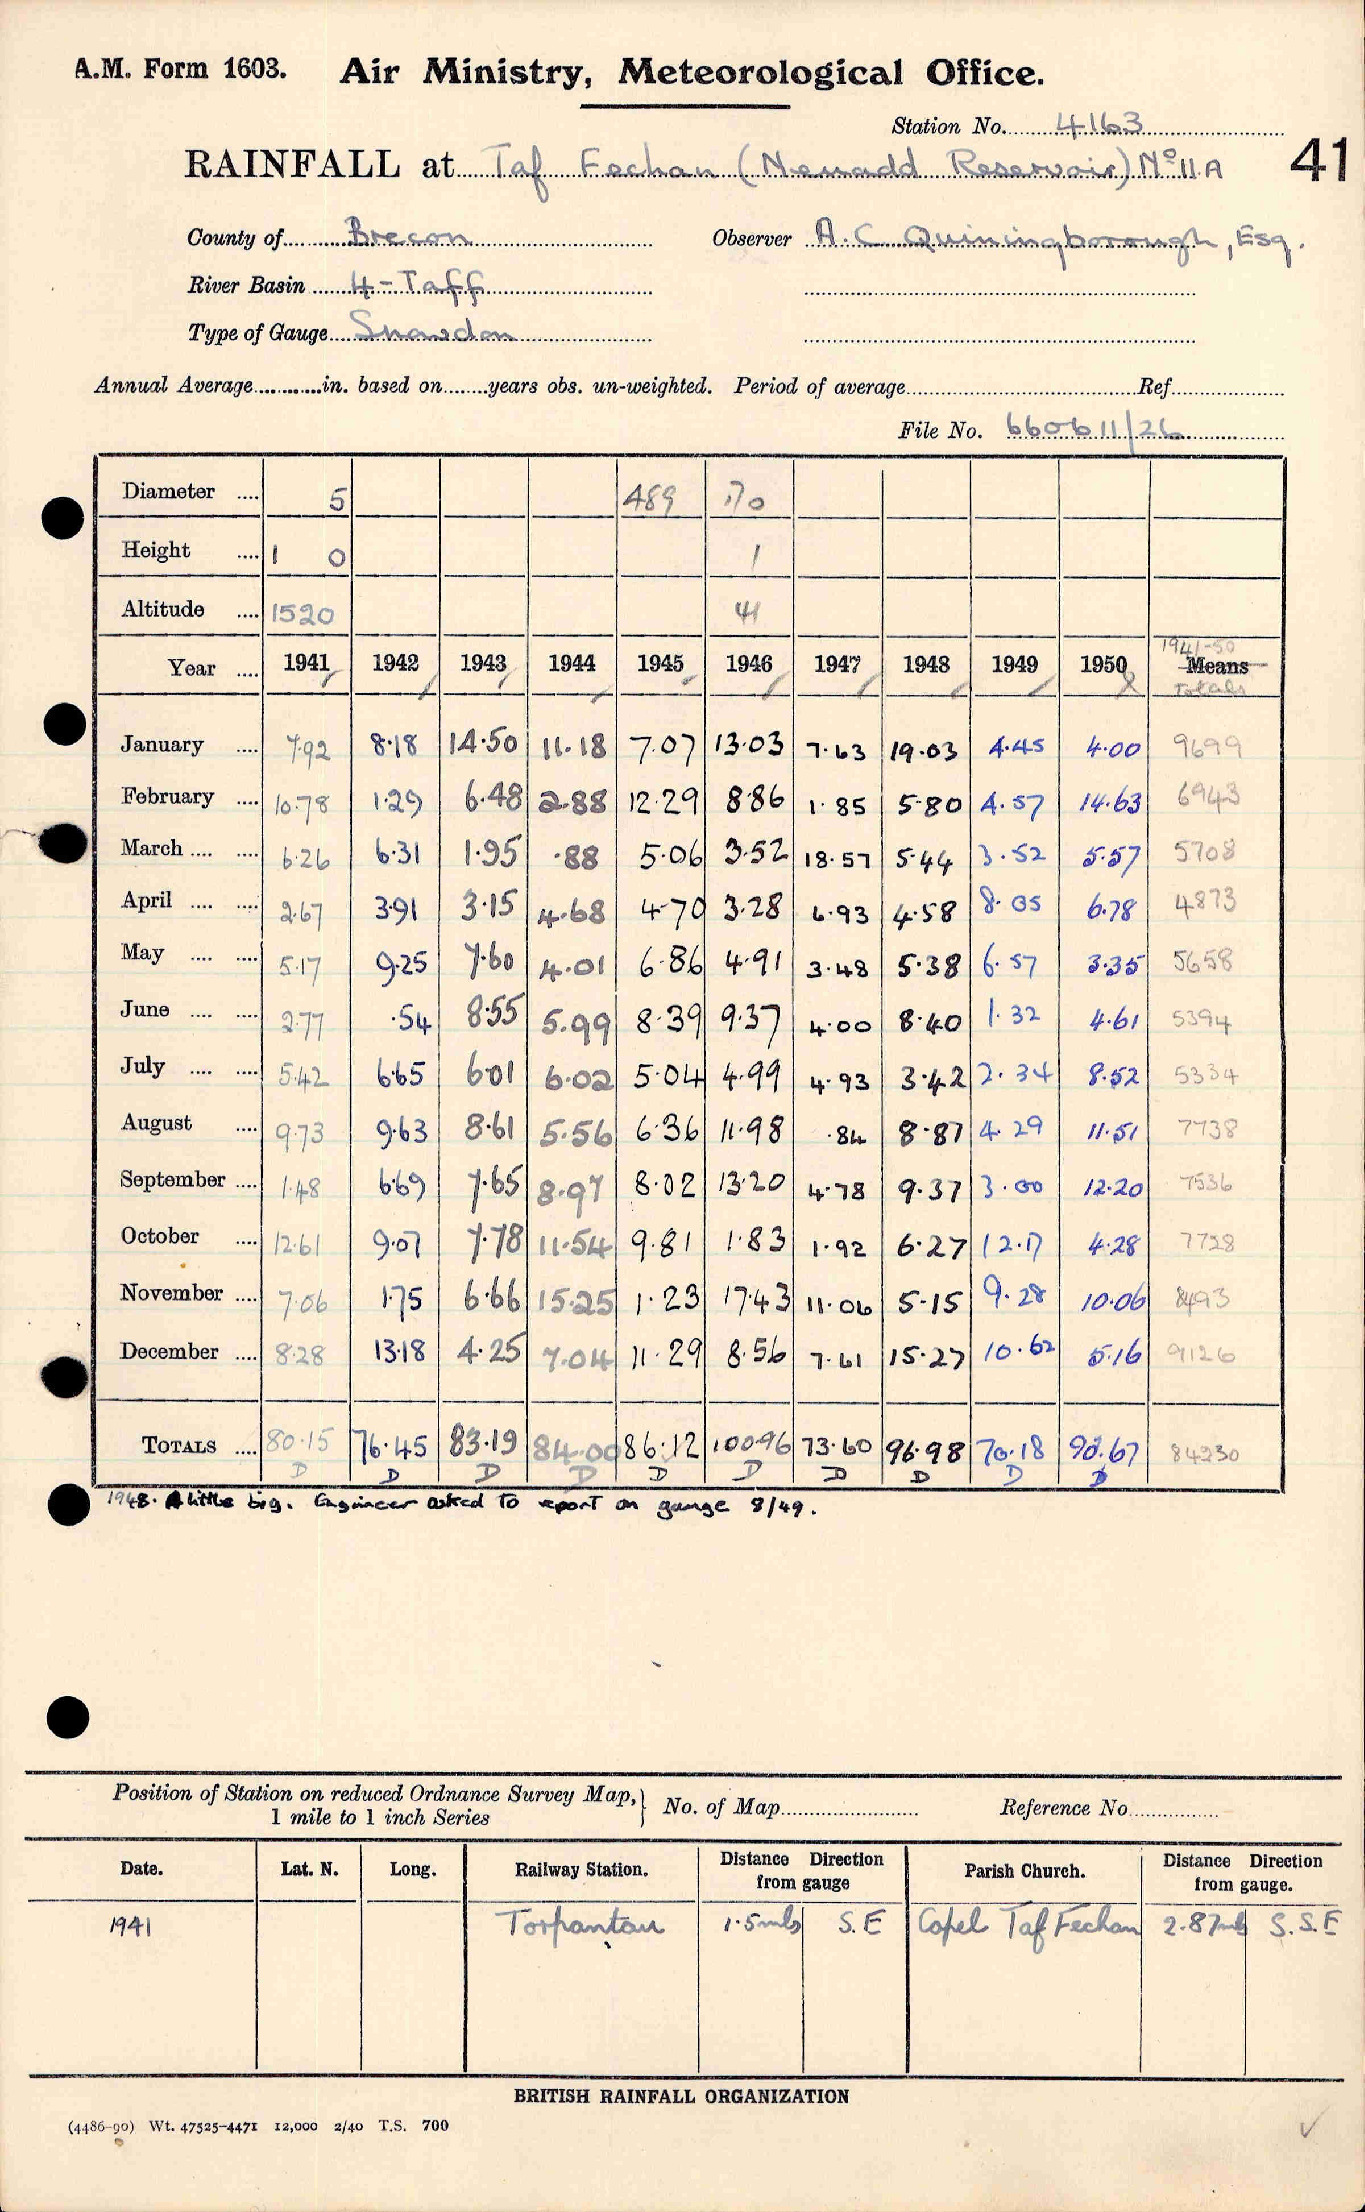 A.M. Form 1603. Air Ministry, Meteorological Office.
Station No. 4163
RAINFALL at Taf Fechan (Neuadd Reservoir) No 11A 41
County of Brecon Observer A.C. Quiningborough, Esq.
River Basin 4-Taff
Type of Gauge Snowdon
Annual Average in. based on years obs. un-weighted. Period of average Ref
File No. 660611/26
Diameter .... 5 489 170
Height .... 1 0 1
Altitude .... 1520 41
1941-50
Year .... 1941 1942 1943 1944 1945 1946 1947 1948 1949 1950 Means
Totals
January .... 7.92 8.18 14.50 11.18 7.07 13.03 7.63 19.03 4.45 4.00 9699
February .... 10.78 1.29 6.48 2.88 12.29 8.86 1.85 5.80 4.57 14.63 6943
March .... .... 6.26 6.31 1.95 .88 5.06 3.52 18.57 5.44 3.52 5.57 5708
April .... .... 2.67 3.91 3.15 4.68 4.70 3.28 6.93 4.58 8.05 6.78 4873
May .... .... 5.17 9.25 7.60 4.01 6.86 4.91 3.48 5.38 6.57 3.35 5658
June .... .... 2.77 .54 8.55 5.99 8.39 9.37 4.00 8.40 1.32 4.61 5394
July .... .... 5.42 6.65 6.01 6.02 5.04 4.99 4.93 3.42 2.34 8.52 5334
August .... 9.73 9.63 8.61 5.56 6.36 11.98 .84 8.87 4.29 11.51 7738
September .... 1.48 6.69 7.65 8.97 8.02 13.20 4.78 9.37 3.00 12.20 7536
October .... 12.61 9.07 7.78 11.54 9.81 1.83 1.92 6.27 12.17 4.28 7728
November .... 7.06 1.75 6.66 15.25 1.23 17.43 11.06 5.15 9.28 10.06 8493
December .... 8.28 13.18 4.25 7.04 11.29 8.56 7.61 15.27 10.62 5.16 9126
TOTALS .... 80.15 76.45 83.19 84.00 86.12 100.96 73.60 96.98 70.18 90.67 84230
D D D D D D D D D D
1948. A little big. Engineer asked to report on gauge 8/49.
Position of Station on reduced Ordnance Survey Map, } No. of Map Reference No.
1 mile to 1 inch Series
Date. Lat. N. Long. Railway Station. Distance Direction from gauge Parish Church. Distance Direction from gauge.
1941 Torpantau 1.5mls S.E Capel Taf Fechan 2.87mls S.S.E
BRITISH RAINFALL ORGANIZATION
(4486-90) Wt. 47525-4471 12,000 2/40 T.S. 700